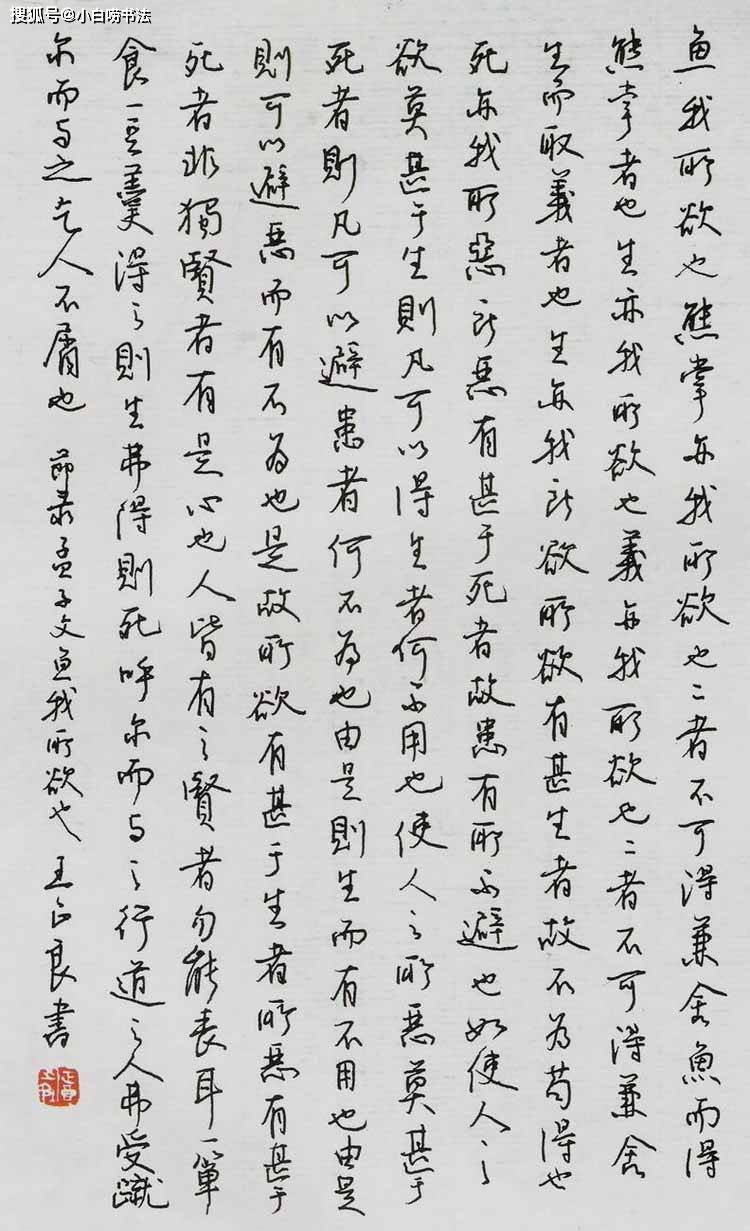 搜狐号@小白唠书法
魚我所欲也熊掌亦我所欲也二者不可得兼舍魚而得
熊掌者也生亦我所欲也義亦我所欲也二者不可得兼舍
生而取義者也生亦我所欲所欲有甚生者故不為苟得也
死亦我所惡所惡有甚于死者故患有所不避也如使人之
欲莫甚于生則凡可以得生者何不用也使人之所惡莫甚于
死者則凡可以避患者何不為也由是則生而有不用也由是
則可以避惡而有不為也是故所欲有甚于生者所惡有甚于
死者非獨賢者有是心也人皆有之賢者勿能喪耳一簞
食一豆羹得之則生弗得則死呼尔而与之行道之人弗受蹴
尔而与之乞人不屑也 節录孟子文魚我所欲也 王正良書